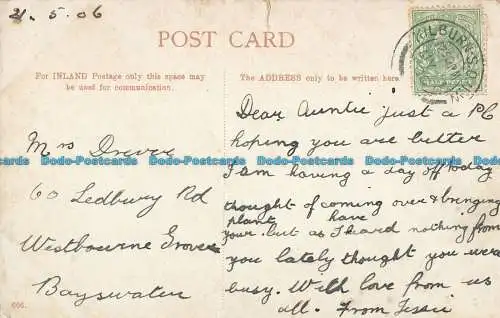 21.5.06
POST CARD
For INLAND Postage only this space may
be used for communication.
The ADDRESS only to be written here.
KILBURN.S.O
Dear Auntie just a PC
hoping you are better
I am having a day off today
thought of coming over & bringing
your plant but as I have heard nothing from
you lately thought you were
busy. With love from us
all. From Jessie
Mrs
60 Ledbury Rd
Westbourne Grove
Bayswater
Dodo-Postcards Dodo-Postcards Dodo-Postcards Dodo-Postcards